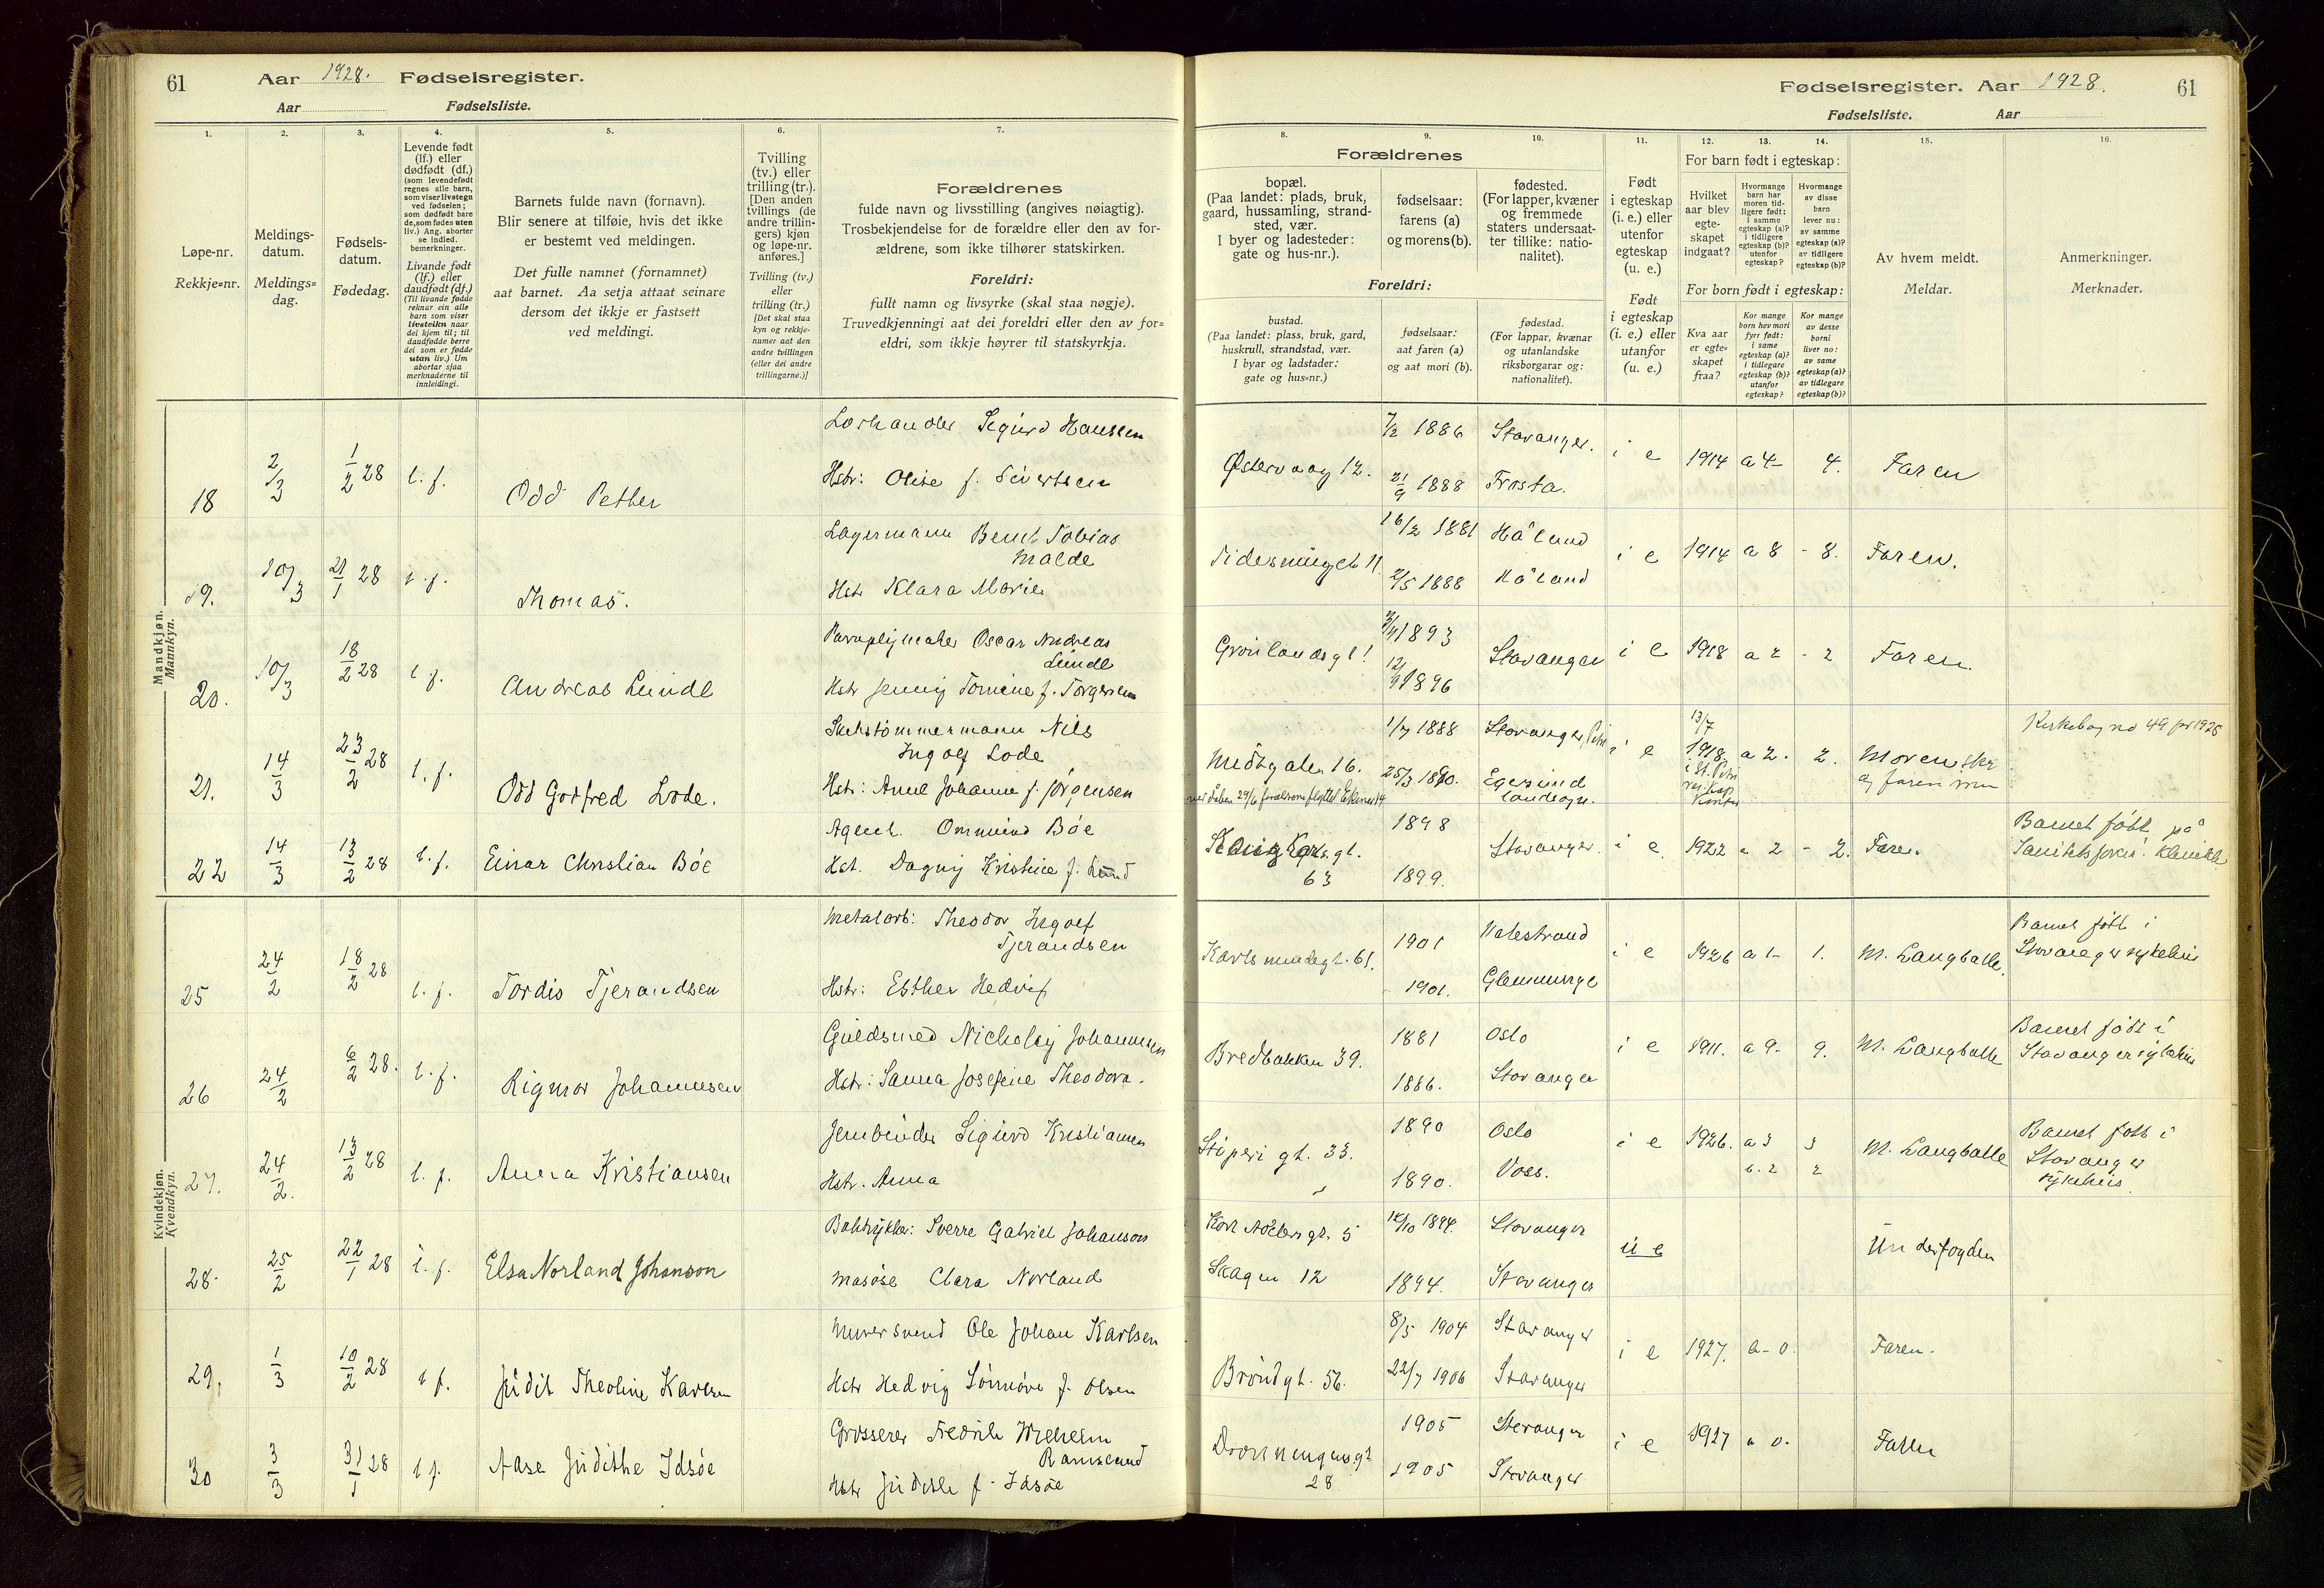 61
Aar 1928. Fødselsregister.
Aar Fødselsliste.
1.
2.
3.
4.
5.
6.
7.
Løpe-nr.
Rekkje=nr.
Meldings-
datum.
Meldings=
dag.
Fødsels-
datum.
Fødedag.
Levende født
(lf.) eller
dødfødt (df.)
(som levendefødt
regnes alle barn,
som viser livstegn
ved fødselen;
som dødfødt bare
de, som fødes uten
liv.) Ang. aborter
se indled.
bemerkninger.
Livande født
(lf.) eller
daudfødt (df.)
(Til livande fødde
reknar ein alle
barn som viser
livsteikn naar
dei kjem til; til
daudfødde berre
dei som er fødde
utan liv.) Um
abortar sjaa
merknaderne til
innleidingi.
Barnets fulde navn (fornavn).
Blir senere at tilføie, hvis det ikke
er bestemt ved meldingen.
Det fulle namnet (fornamnet)
aat barnet. Aa setja attaat seinare
dersom det ikkje er fastsett
ved meldingi.
Tvilling
(tv.) eller
trilling (tr.).
[Den anden
tvillings (de
andre trillin-
gers) kjøn
og løpe-nr.
anføres.]
Tvilling (tv.)
eller
trilling (tr.)
[Det skal staa
kyn og rekkje-
numer aat den
andre tvillingen
(eller dei andre
trillingarne.)]
Forældrenes
fulde navn og livsstilling (angives nøiagtig).
Trosbekjendelse for de forældre eller den av for-
ældrene, som ikke tilhører statskirken.
Foreldri:
fullt namn og livsyrke (skal staa nøgje).
Truvedkjenningi aat dei foreldri eller den av for=
eldri, som ikkje høyrer til statskyrkja.
Mandkjøn.
Mannkyn.
18 2/3 1/2 28 l. f. Odd Petter
Sigurd Hanssen
Hstr: Olise f. Sivertsen
19. 10/3 21/1 28 l. f. Thomas.
Lagermann Bernt Tobias
Malde
Hstr Klara Marie
20. 10/3 18/2 28 l f. Andreas Lunde
Paraplymaker Oscar Andreas
Lunde
Hstr Jenny Tomine f. Torgersen
21. 14/3 23/2 28 l. f. Odd Godfred Lode.
Nils
Ingolf Lode
Hstr: Anne Johanne f. Jørgensen
22 14/3 13/2 28 l. f. Einar Christian Bóe
Agent. Ommund Bóe
Hst. Dagny Kristine f. Lund
Kvindekjøn.
Kvendkyn.
25 24/2 18/2 28 l. f. Tordis Tjerandsen
Metalarb: Theodor Ingolf
Tjerandsen
Hstr: Esther Hedvig
26 24/2 6/2 28. l. f. Rigmor Johannesen
Guldsmed Nicholay Johannesen
Hstr: Sanna Josefine Theodora.
27. 24/2. 13/2 28 l. f. Anna Kristiansen
Jernbinder Sigurd Kristiansen
Hstr. Anna
28. 25/2 22/1 28 l. f. Elsa Norland Johanson
Boktrykker: Sverre Gabriel Johanson
Clara Norland
29. 1/3 10/2 28 l f. Judit Theoline Karlsen
Murersvend Ole Johan Karlsen
Hstr Hedvig f. Olsen
30 3/3 31/1 28 l f. Aase Judithe Idsöe
Grosserer Fredrik Wilhelm
Ramslund
Hstr Judithe f. Idsöe
Fødselsregister. Aar 1928. 61
Fødselsliste. Aar
8.
9.
10.
11.
12.
13.
14.
15.
16.
Forældrenes
bopæl.
(Paa landet: plads, bruk,
gaard, hussamling, strand-
sted, vær.
I byer og ladesteder:
gate og hus-nr.).
fødselsaar:
farens (a)
og morens (b).
fødested.
(For lapper, kvæner
og fremmede
staters undersaat-
ter tillike: natio-
nalitet).
Foreldri:
bustad.
(Paa landet: plass, bruk, gard,
huskrull, strandstad, vær.
I byar og ladstader:
gate og hus=nr.)
fødselsaar:
aat faren (a)
og aat mori (b).
fødestad.
(For lappar, kvænar
og utanlandske
riksborgarar og:
nationalitet).
Født
i egteskap
(i. e.) eller
utenfor
egteskap
(u. e.)
Født
i egteskap
(i. e.) eller
utanfor
(u. e.)
For barn født i egteskap:
Hvilket
aar blev
egte-
skapet
indgaat?
Hvormange
barn har
moren tid-
ligere født:
i samme
egteskap (a)?
i tidligere
egteskap (b)?
utenfor
egteskap?
Hvormange
av disse
barn
lever nu:
av samme
egteskap (a)?
av tidligere
egteskap (b)?
For born født i egteskap:
Kva aar
er egte=
skapet
fraa?
Kor mange
born hev mori
fyrr født:
i same
egteskap (a)?
i tidlegare
egteskap (b)?
utanfor
egteskap?
Kor mange
av desse
borni
liver no:
av same
egteskap (a)?
av tidlegare
egteskap (b)?
Av hvem meldt.
Meldar.
Anmerkninger.
Merknader.
Østervaag 12. 7/2 1886 Stavanger. i e 1914 a 4- 4. Faren
21/9 1888 Frosta.
16/2 1881 Håland i e 1914 a 8 - 8. Faren.
1888 Håland
Grønlandsgt 1 1893 Stavanger i e 1918 a 2 - 2 Faren.
1896
Midtgaten 16. 1/7 1888 Stavanger, Petri i e 13/7 1918 a 2. 2. Moren
Kirkebog no 49 for 1925
25/3 1890. Egersund
landsogn.
og faren
1898 Stavanger. i e 1922 a 2 - 2. Faren
63 1899.
Barnet født på
klinikk
Karlsmindegt. 61. 1901 Valestrand i e 1926 a 1- 1. M. Langballe.
1901. Glemminge
Barnet født i
Stavanger sykehus
Bredbakken 39. 1881 Oslo i e 1911. a 9- 9. M. Langballe
1886. Stavanger
Barnet født i
Stavanger sykehus
gt. 33. 1890 Oslo i e 1926. a 3 3 M. Langballe
1890. Voss. b. 2 2
Barnet født i
Stavanger
sykehus
5 1894. Stavanger u e Underfogden
Skagen 12 1894. Stavanger
Brøndgt. 56. 8/5 1904 Stavanger i e 1927. a - 0. Faren.
22/7 1906 Stavanger
Dronningensgt
28 1905 Stavanger i e 1927 a 0.
1905 Stavanger